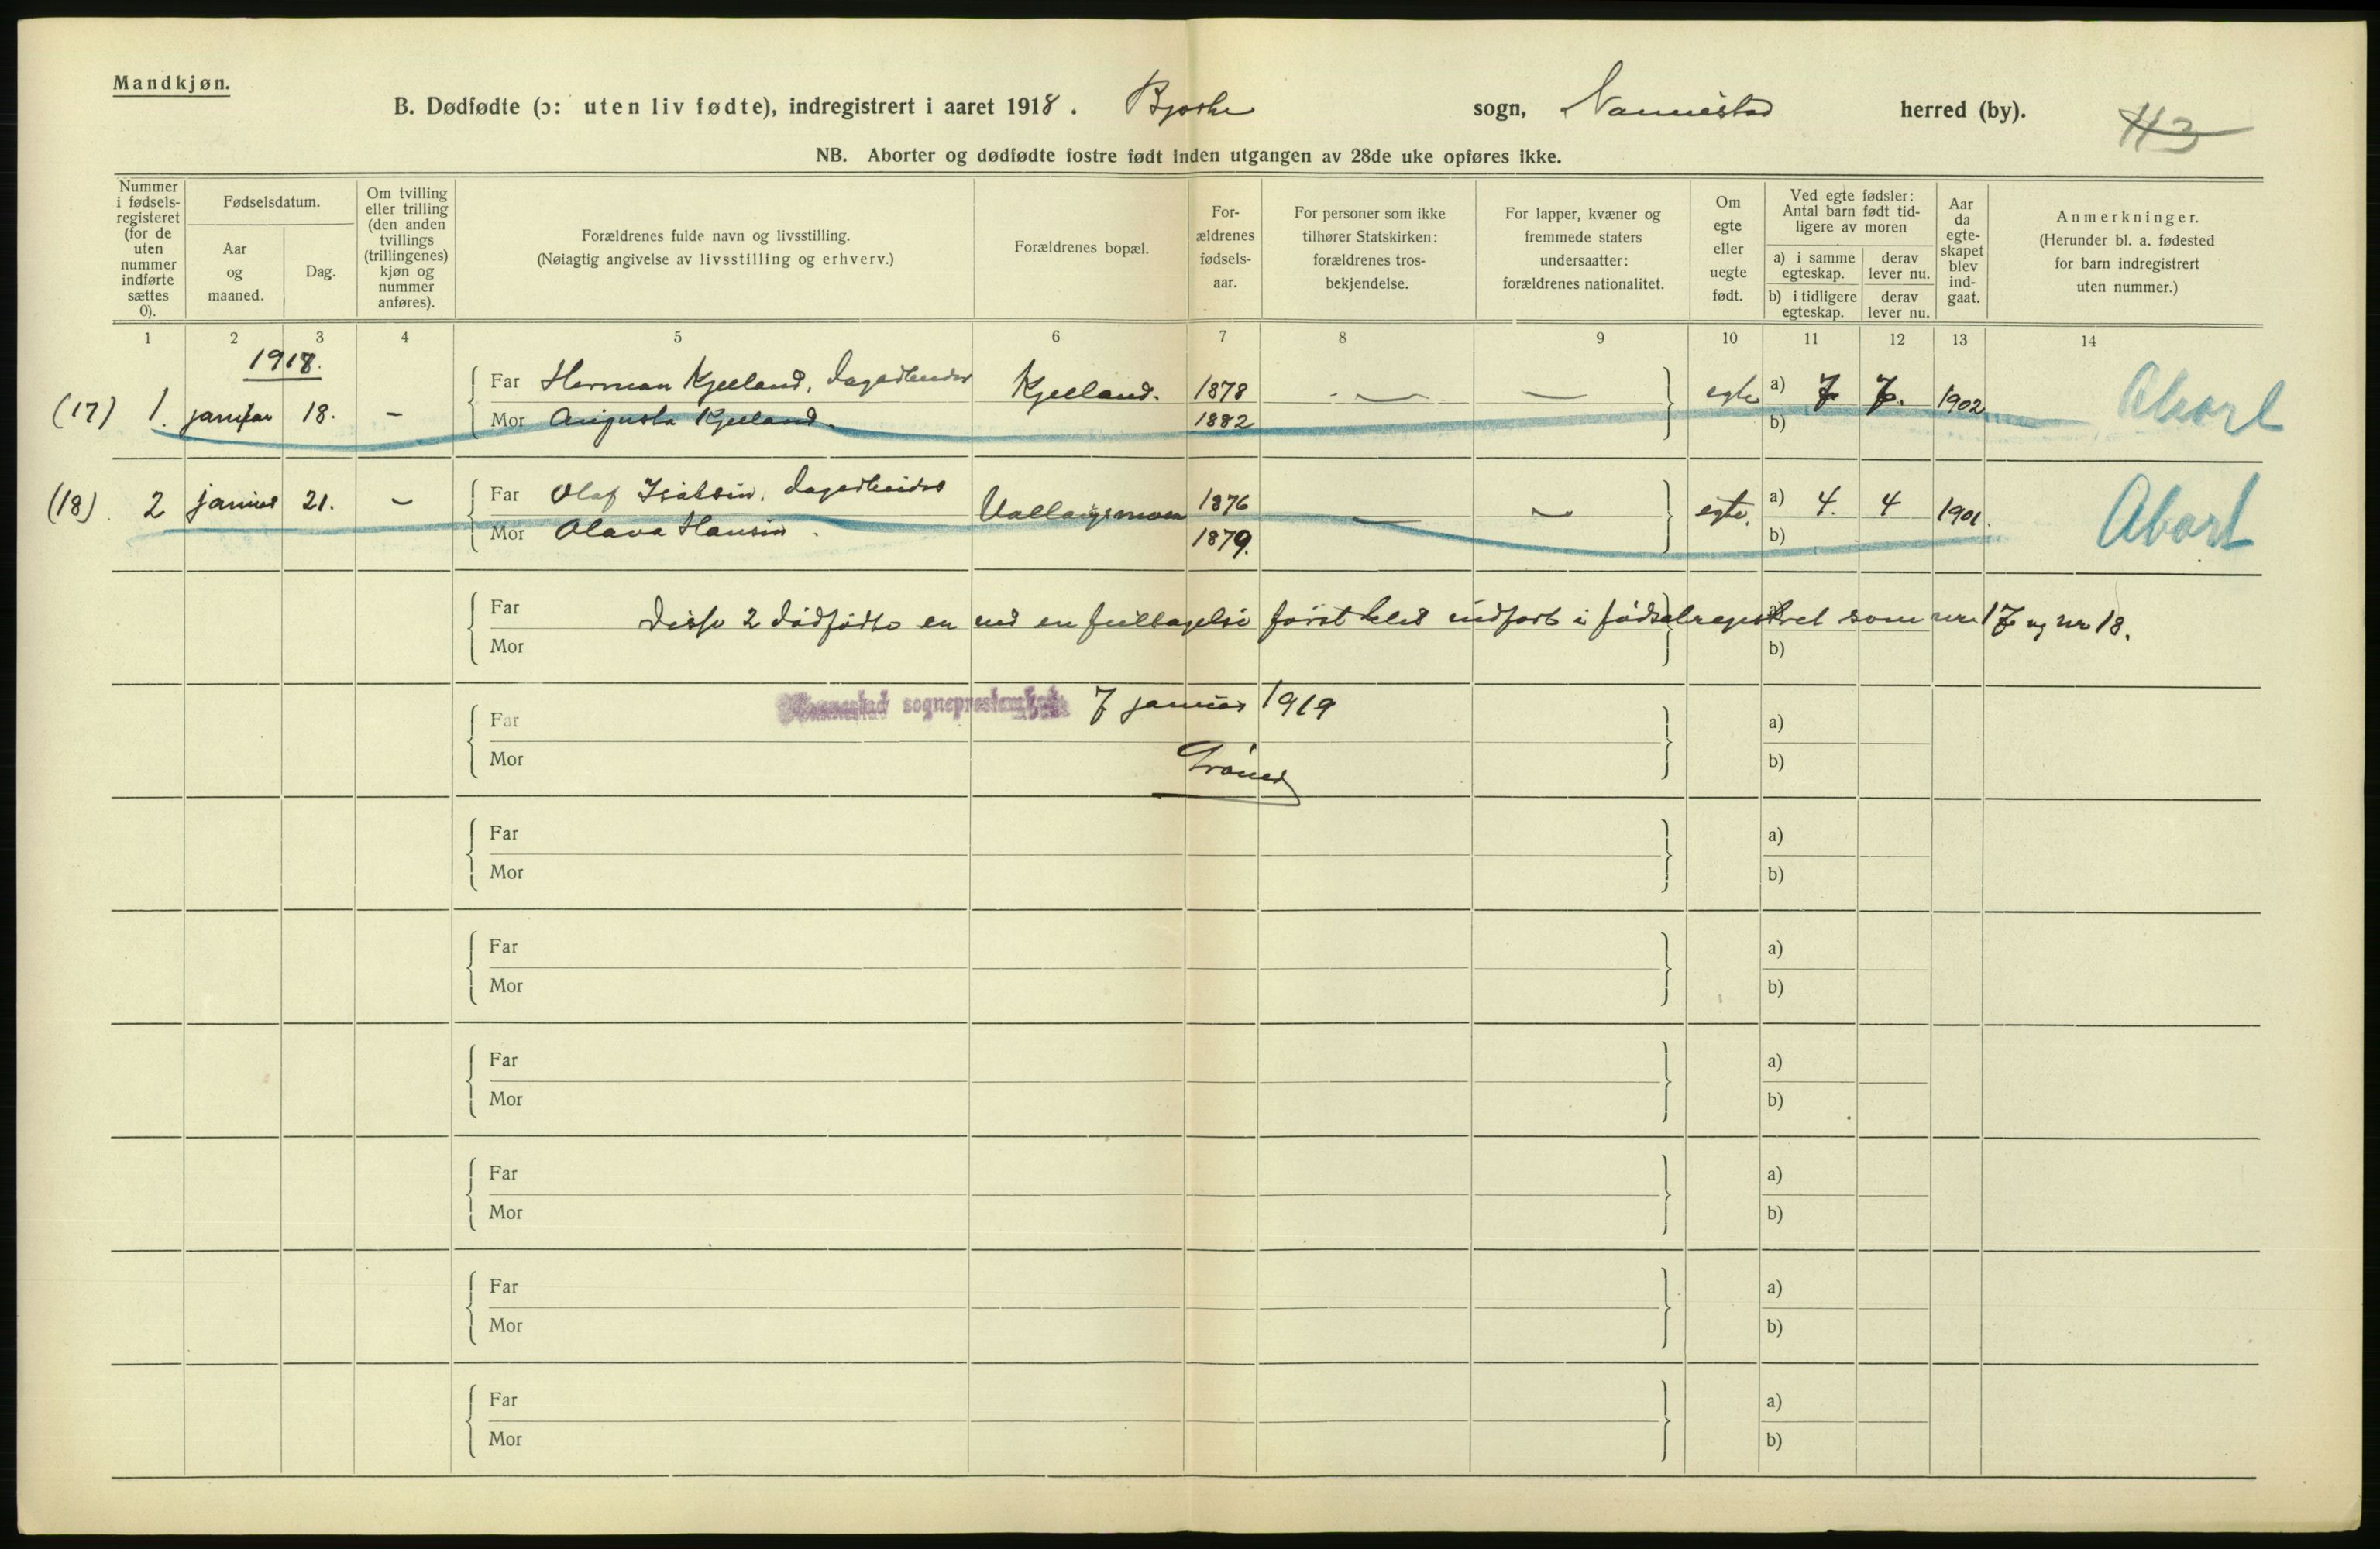 Mandkjøn.
B. Dødfødte (ɔ: uten liv fødte), indregistrert i aaret 1918. Bjerke sogn, Nannestad herred (by).
113
NB. Aborter og dødfødte fostre født inden utgangen av 28de uke opføres ikke.
Nummer i fødsels-registeret (for de uten nummer indførte sættes 0).
Fødselsdatum.
Aar og maaned.
Dag.
Om tvilling eller trilling (den anden tvillings (trillingenes) kjøn og nummer anføres).
Forældrenes fulde navn og livsstilling.
(Nøiagtig angivelse av livsstilling og erhverv.)
Forældrenes bopæl.
For-ældrenes fødsels-aar.
For personer som ikke tilhører Statskirken: forældrenes tros-bekjendelse.
For lapper, kvæner og fremmede staters undersaatter: forældrenes nationalitet.
Om egte eller uegte født.
Ved egte fødsler: Antal barn født tid-ligere av moren
a) i samme egteskap.
derav lever nu.
b) i tidligere egteskap.
derav lever nu.
Aar da egte-skapet blev ind-gaat.
Anmerkninger.
(Herunder bl. a. fødested for barn indregistrert uten nummer.)
1 2 3 4 5 6 7 8 9 10 11 12 13 14
1918.
(17) 1. januar 18. – Far Herman Kjelland, dagarbeider Kjelland. 1878 — — egte a) 7 7. 1902 Abort
Mor Augusta Kjelland. 1882 b)
(18) 2 januar 21. – Far Olaf Isaksen, dagarbeider 1876 — — egte. a) 4. 4 1901. Abort
Mor Olava Hansen. 1879. b)
Far Disse 2 dødfødte er ved en feiltagelse først blet indført i fødselregistret som nr 17 og nr 18.
Mor b)
Nannestad sogneprestembede 7 januar 1919
Far a)
Mor b)
Far a)
Mor b)
Far a)
Mor b)
Far a)
Mor b)
Far a)
Mor b)
Far a)
Mor b)
Far a)
Mor b)